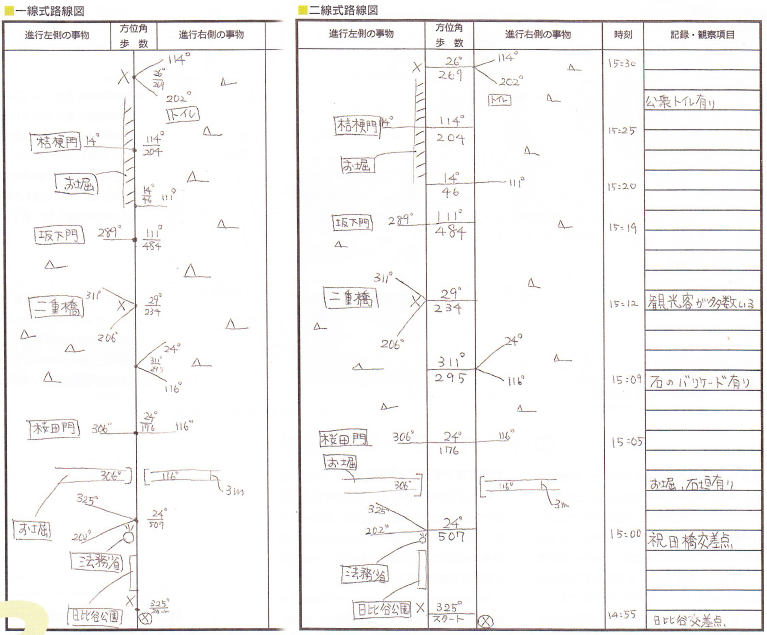 ■一線式路線図
進行左側の事物 方位角 歩数 進行右側の事物
114°
× 26° 269
202°
トイレ
桔梗門 14° 114° 204
お堀
14° 46 111°
坂下門 289° 111° 484
311°
二重橋 × 29° 234
206°
24°
311° 295
116°
桜田門 306° 24° 176 116°
306° 116°
3m
325°
お堀 24° 507
202°
法務省
日比谷公園 × 325° スタート
■二線式路線図
進行左側の事物 方位角 歩数 進行右側の事物 時刻 記録・観察項目
× 26° 269 114° 15:30
202°
トイレ 公衆トイレ有り
桔梗門 14° 114° 204 15:25
お堀
14° 46 111° 15:20
坂下門 289° 111° 484 15:19
311°
二重橋 × 29° 234 15:12 観光客が多数いる
206°
24°
311° 295 15:09 石のバリケード有り
116°
桜田門 306° 24° 176 116° 15:05
お堀
306° 116° お堀、石垣有り
3m
325°
202° 24° 507 15:00 祝田橋交差点
法務省
日比谷公園 × 325° スタート 14:55 日比谷交差点